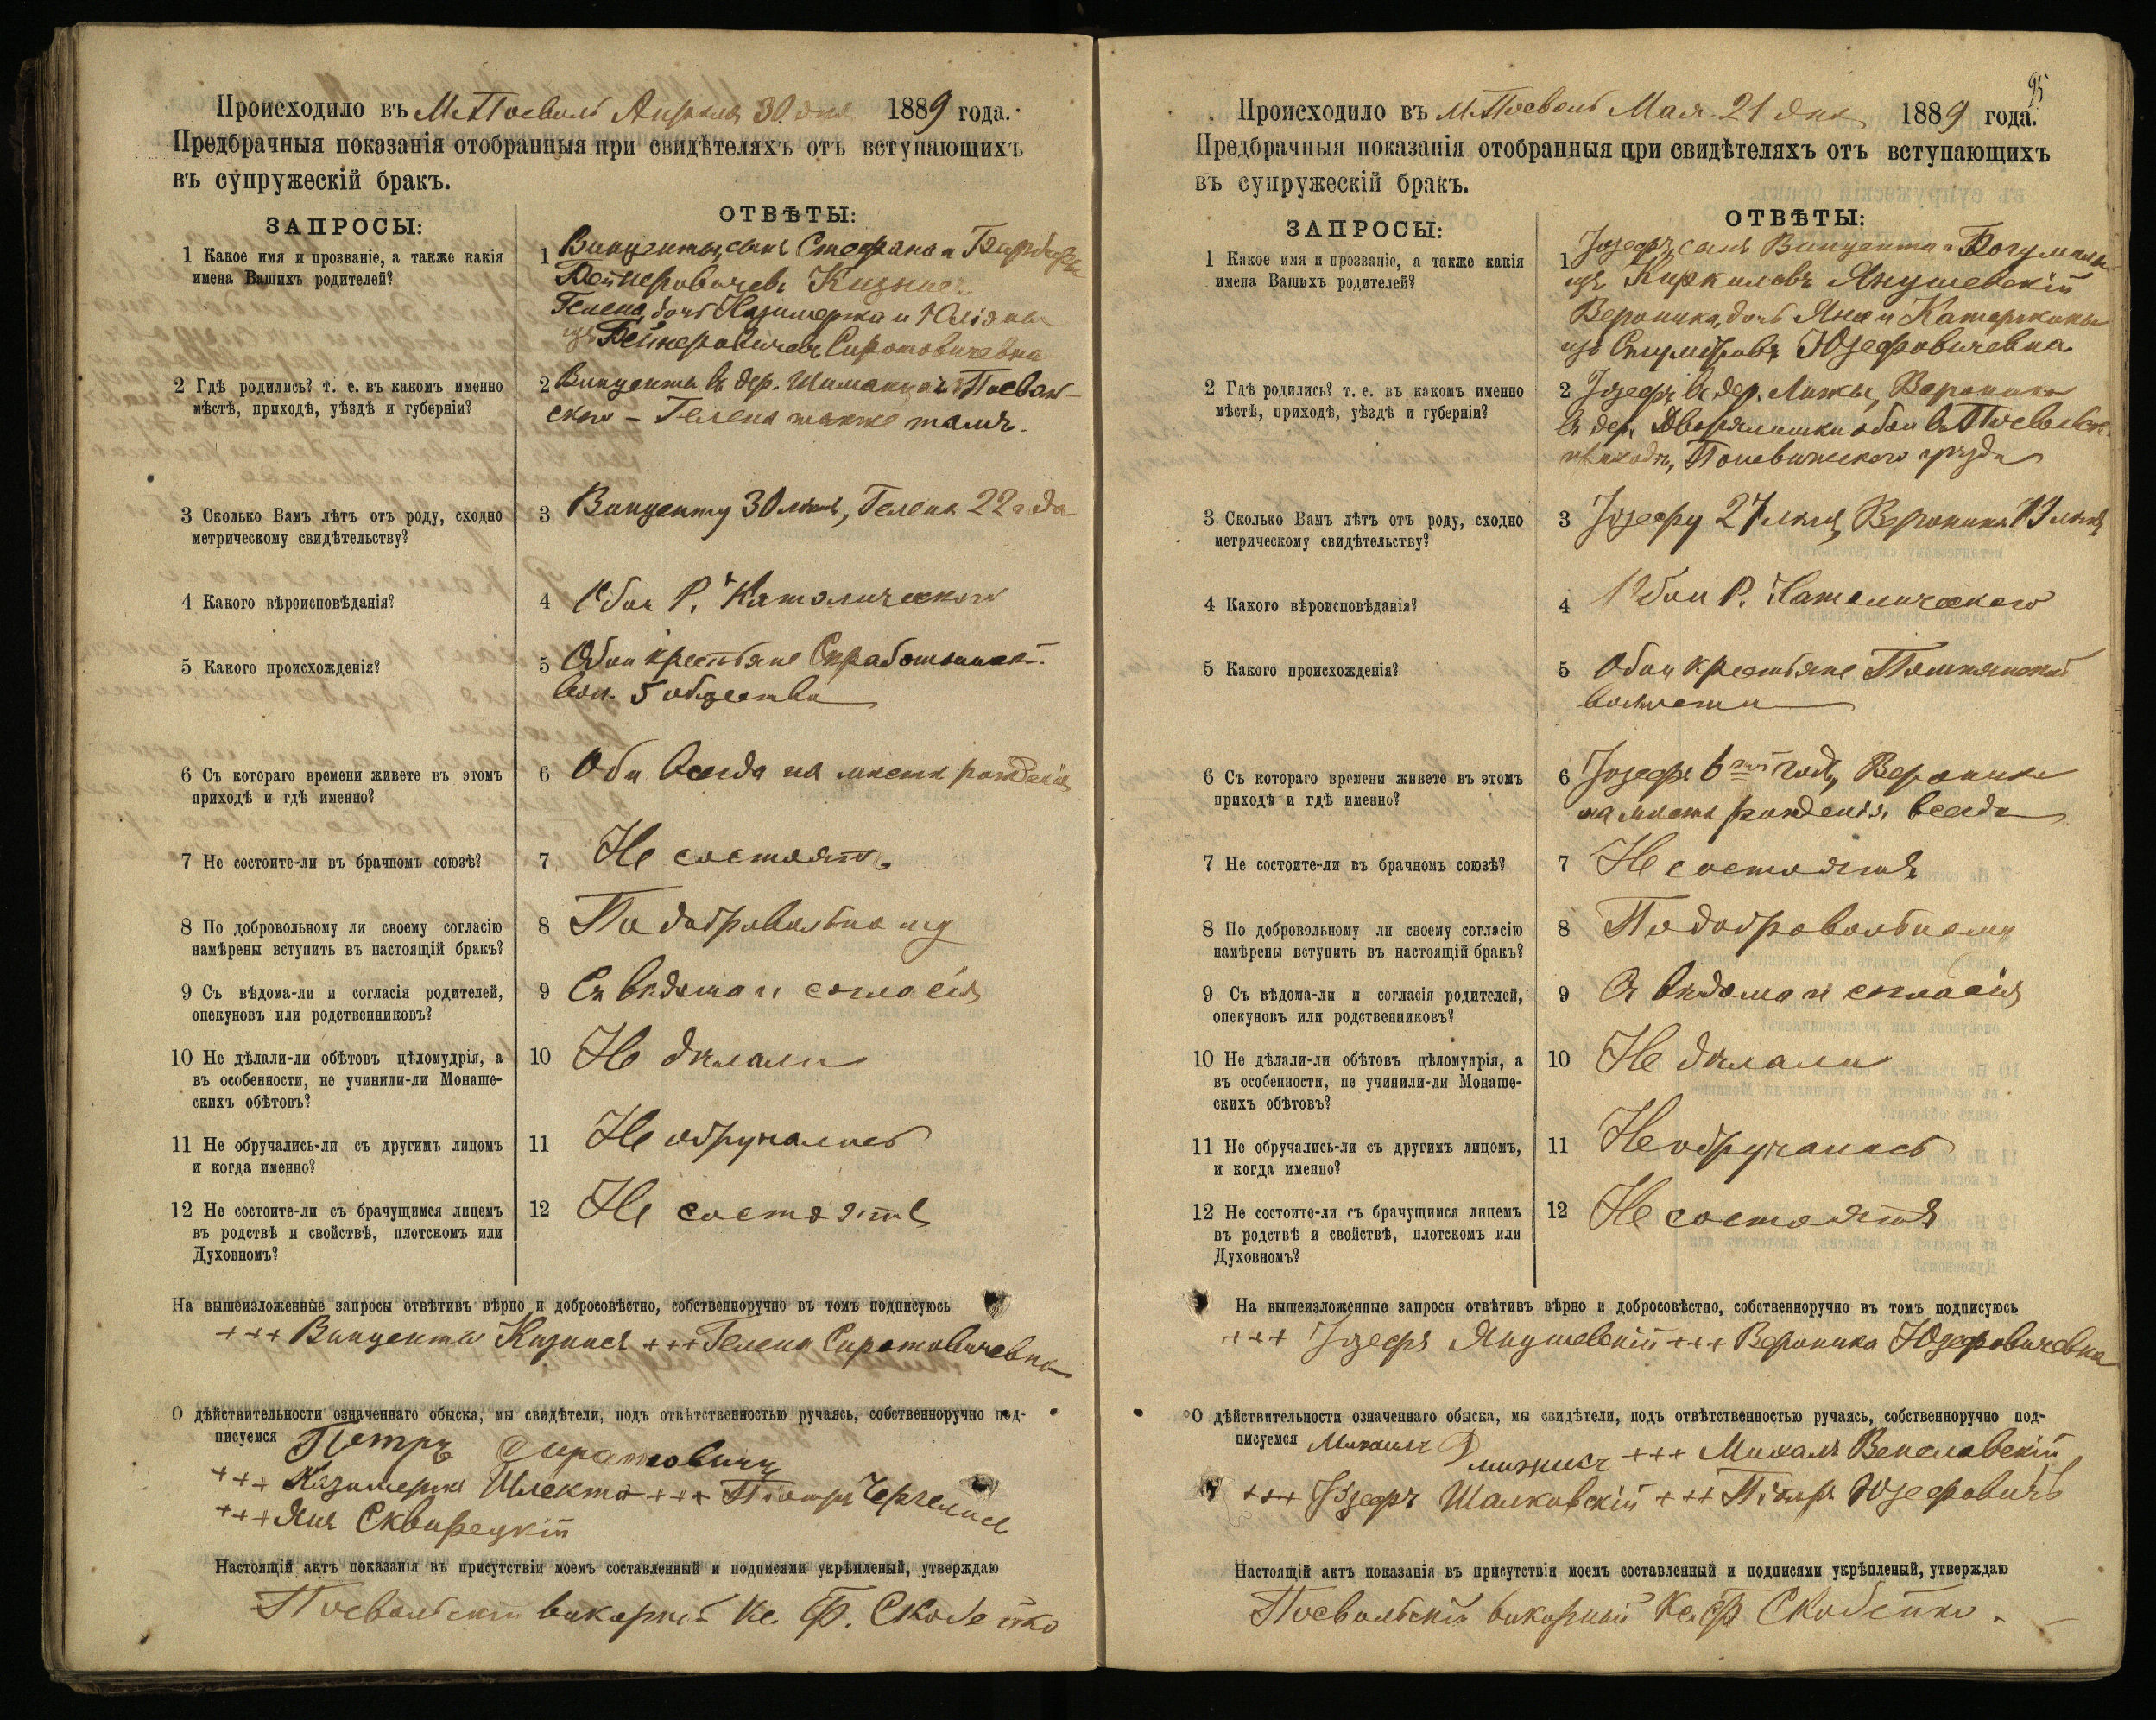 Происходило въ М. Посволь Апрѣля 30 дня 1889 года.
Предбрачныя показанія отобранныя при свидѣтеляхъ отъ вступающихъ
въ супружескій бракъ.
ЗАПРОСЫ:
ОТВѢТЫ:
1 Какое имя и прозваніе, а также какія
имена Вашихъ родителей?
1 Винцентый, сынъ Стефана и
Гелена, дочь Казимержа и Юліяны
Сиротовичевна
2 Гдѣ родились? т. е. въ какомъ именно
мѣстѣ, приходѣ, уѣздѣ и губерніи?
2 Винценты въ дер. Посволь-
скаго – Гелена также тамъ.
3 Сколько Вамъ лѣтъ отъ роду, сходно
метрическому свидѣтельству?
3 Винценту 30 лѣтъ, Гелена 22 года
4 Какого вѣроисповѣданія?
4 Обои Р. Католическаго
5 Какого происхожденія?
5 Обои крестьяне
вол. 5 общества
6 Съ котораго времени живете въ этомъ
приходѣ и гдѣ именно?
6 Оби всегда на мѣстѣ рожденія
7 Не состоите-ли въ брачномъ союзѣ?
7 Не состоятъ
8 По добровольному ли своему согласію
намѣрены вступить въ настоящій бракъ?
8 По добровольному
9 Съ вѣдома-ли и согласія родителей,
опекуновъ или родственниковъ?
9 Съ вѣдома и согласія
10 Не дѣлали-ли обѣтовъ цѣломудрія, а
въ особенности, не учинили-ли Монаше-
скихъ обѣтовъ?
10 Не дѣлали
11 Не обручались-ли съ другимъ лицомъ
и когда именно?
11 Не обручались
12 Не состоите-ли съ брачущимся лицемъ
въ родствѣ и свойствѣ, плотскомъ или
Духовномъ?
12 Не состоятъ
На вышеизложенные запросы отвѣтивъ вѣрно и добросовѣстно, собственноручно въ томъ подписуюсь
+++ Винценты +++ Гелена Сиротовичевна
О дѣйствительности означеннаго обыска, мы свидѣтели, подъ отвѣтственностью ручаясь, собственноручно под-
писуемся Петръ
+++ Казимержъ Шлекто +++ Петръ
+++ Янъ Сквирецкій
Настоящій актъ показанія въ присутствіи моемъ составленный и подписями укрѣпленый, утверждаю
Посвольскій викарный Кс. Ф. Скобейко
95
Происходило въ М. Посволь Мая 21 дня 1889 года.
Предбрачныя показанія отобранныя при свидѣтеляхъ отъ вступающихъ
въ супружескій бракъ.
ЗАПРОСЫ:
ОТВѢТЫ:
1 Какое имя и прозваніе, а также какія
имена Вашихъ родителей?
1 Іозефъ, сынъ Винцента и
изъ Киркиловъ Янушевскій
Вероника, дочь Яна и Катержины
изъ Юзефовичевна
2 Гдѣ родились? т. е. въ какомъ именно
мѣстѣ, приходѣ, уѣздѣ и губерніи?
2 Іозефъ въ дер. Вероника
въ дер. обои въ Посвольск.
приходѣ, Поневѣжскаго уѣзда
3 Сколько Вамъ лѣтъ отъ роду, сходно
метрическому свидѣтельству?
3 Іозефу 27 лѣтъ, Вероника 19 лѣтъ
4 Какого вѣроисповѣданія?
4 Обои Р. Католическаго
5 Какого происхожденія?
5 Обои крестьяне
волости
6 Съ котораго времени живете въ этомъ
приходѣ и гдѣ именно?
6 Іозефъ 6 той годъ, Вероника
на мѣстѣ рожденія всегда
7 Не состоите-ли въ брачномъ союзѣ?
7 Не состоятъ
8 По добровольному ли своему согласію
намѣрены вступить въ настоящій бракъ?
8 По добровольному
9 Съ вѣдома-ли и согласія родителей,
опекуновъ или родственниковъ?
9 Съ вѣдома и согласія
10 Не дѣлали-ли обѣтовъ цѣломудрія, а
въ особенности, не учинили-ли Монаше-
скихъ обѣтовъ?
10 Не дѣлали
11 Не обручались-ли съ другимъ лицомъ,
и когда именно?
11 Не обручались
12 Не состоите-ли съ брачущимся лицемъ
въ родствѣ и свойствѣ, плотскомъ или
Духовномъ?
12 Не состоятъ
На вышеизложенные запросы отвѣтивъ вѣрно и добросовѣстно, собственноручно въ томъ подписуюсь
+++ Іозефъ Янушевскій +++ Вероника Юзефовичевна
О дѣйствительности означеннаго обыска, мы свидѣтели, подъ отвѣтственностью ручаясь, собственноручно под-
писуемся Михаилъ +++ Михалъ Венславскій
+++ Іозефъ Шалковскій +++ Петръ Юзефовичъ
Настоящій актъ показанія въ присутствіи моемъ составленный и подписями укрѣпленый, утверждаю
Посвольскій викарный Кс. Ф. Скобейко.